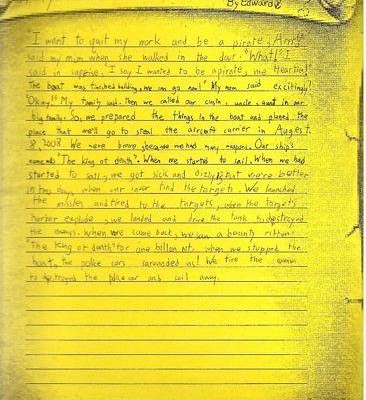 By Edward
"I want to quit my work and be a pirate, Arr!"
said my mum when she walked in the door. "What!" I
said in suprise. "I say I wanted to be a pirate, me Hearties!
The boat was finished building, we can go now!" My mom said excitingly.
"Okay!" My family said. Then we called our cusin, uncle, aunt in our
big family. So, we prepared the things in the boat and planed the
place that we'll go to steal the aircraft carrier in Augest
8, 2008. We were brave because we had many weapons. Our ship's
name is "The king of death". When we started to sail, When we had
started to sail, we got sick and dizzy, but we're better
in two days, when our raver find the targets. We launched
the missles and fired to the targets, when the target's
harber explode, we landed and drive the tank to destroyed
the enemys. When we came back, we saw a bounty
"The king of death" for one billon NT. When we stopped the
boat, the police cars sarounded us! We fire the
to destroyed the police car and sail away.